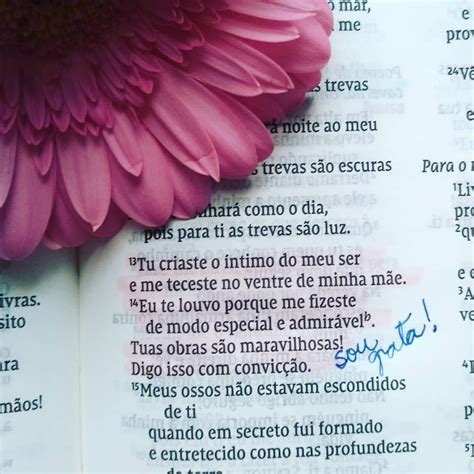 ó mar,
me
s trevas
á noite ao meu
trevas são escuras
nhará como o dia,
pois para ti as trevas são luz.
13Tu criaste o íntimo do meu ser
e me teceste no ventre de minha mãe.
14Eu te louvo porque me fizeste
de modo especial e admirávelb.
Tuas obras são maravilhosas!
Digo isso com convicção.
sou grata!
15Meus ossos não estavam escondidos
de ti
quando em secreto fui formado
e entretecido como nas profundezas
ivras.
sito
ra
mãos!
e
prov
24Vê
e
Para o
1Liv
pro
2qu
e
3A
4I
5